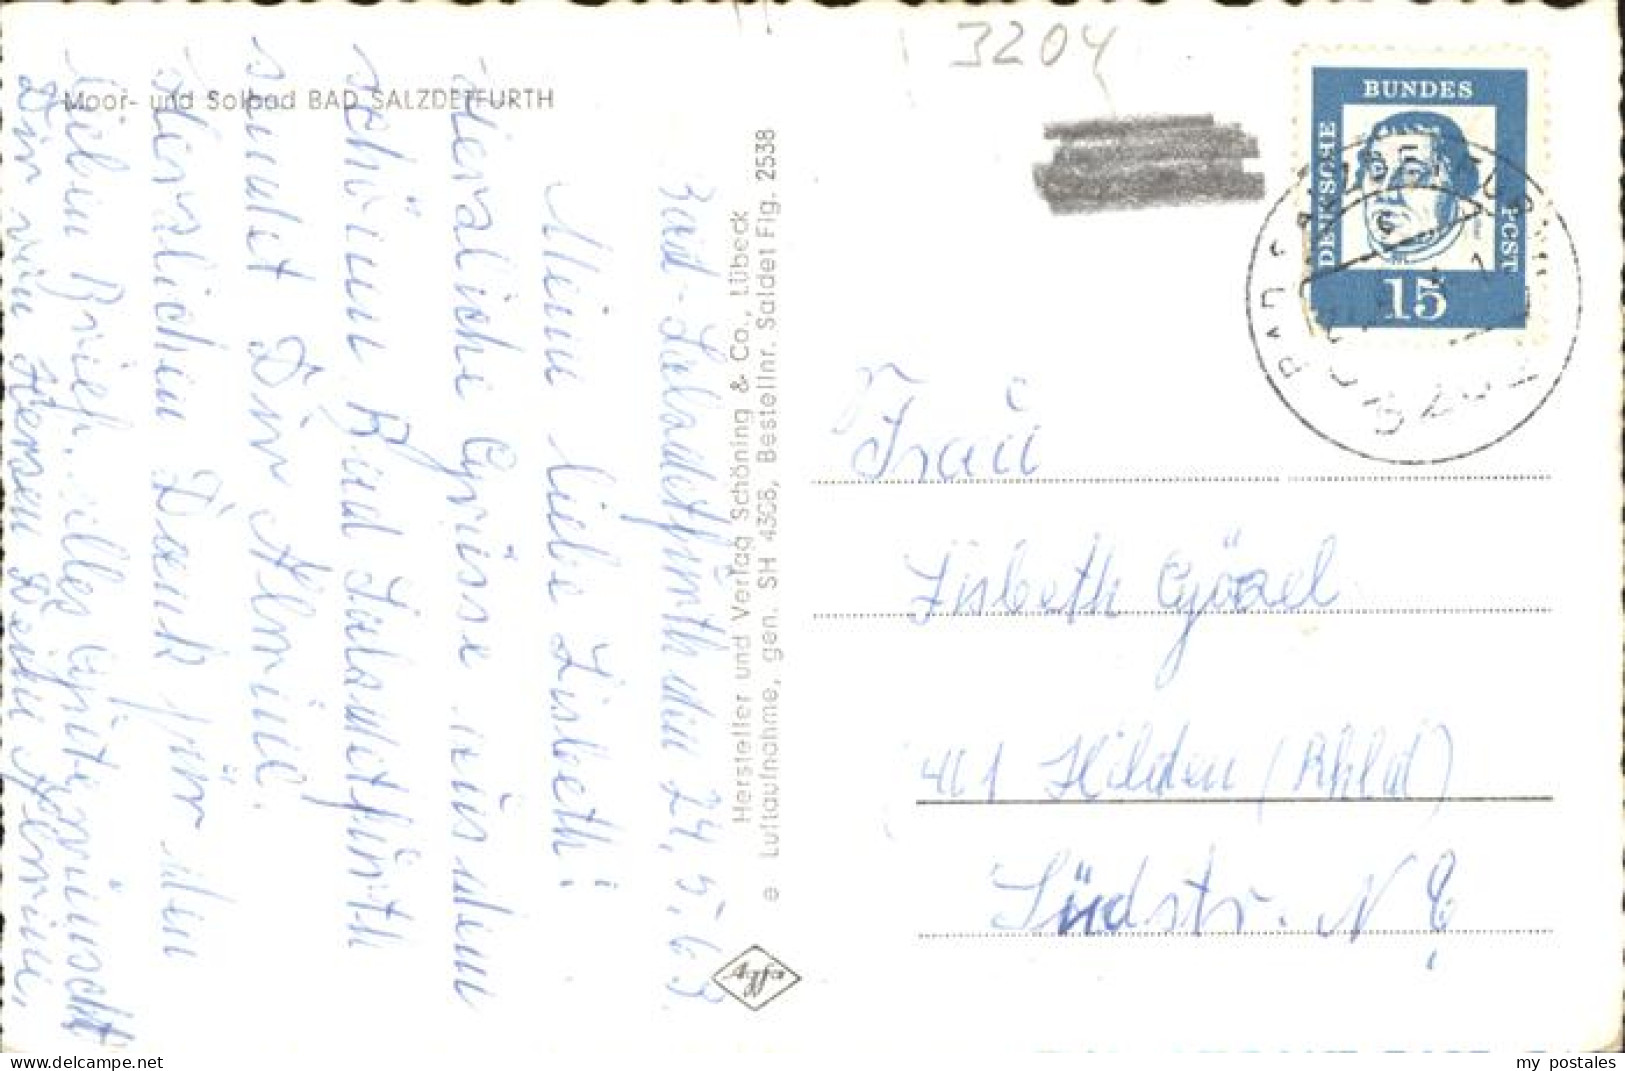 3204
Moor- und Solbad BAD SALZDETFURTH
Bad-Salzdetfurth den 24,5.63
Meine liebe Lisbeth!
Herzliche Grüsse aus dem
schönen Bad Salzdetfurth
sendet Dir Almine.
Herzlichen Dank für den
lieben Brief. Alles Gute wünscht
Dir von Herzen Deine
Hersteller und Verlag Schöning & Co., Lübeck
e Luftaufnahme, gen. SH 4308, Bestellnr. Saldet Fig. 2538
Agfa
DEUTSCHE
BUNDES
POST
15
Frau
Lisbeth Gözel
401 Hilden (Rhld)
Südstr. N 8
my postales